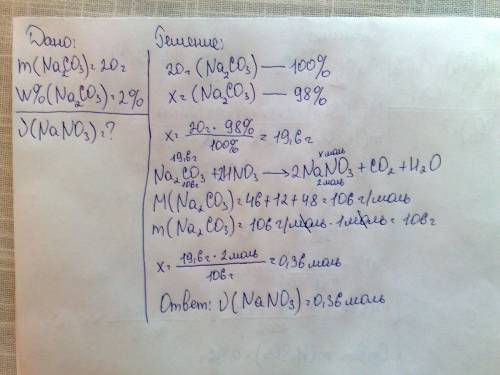 Дано:
m(Na₂CO₃)=20г
W%(Na₂CO₃)=2%
ν(NaNO₃)=?
Решение:
20г (Na₂CO₃) — 100%
x=(Na₂CO₃) — 98%
x= 20г · 98% / 100% = 19,6г
19,6г x моль
Na₂CO₃ +2HNO₃ → 2NaNO₃ + CO₂ + H₂O
106г 2моль
M(Na₂CO₃)=46+12+48=106г/моль
m(Na₂CO₃)=106г/моль · 1моль = 106г
x= 19,6г · 2моль / 106г = 0,36моль
Ответ: ν(NaNO₃)=0,36моль